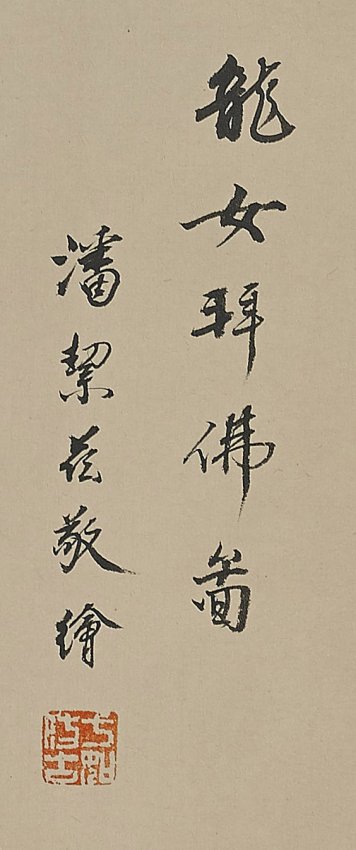 龍女拜佛啚
潘絜茲敬繪